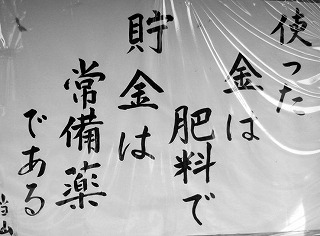 使った
金は
肥料で
貯金は
常備薬
である
当山